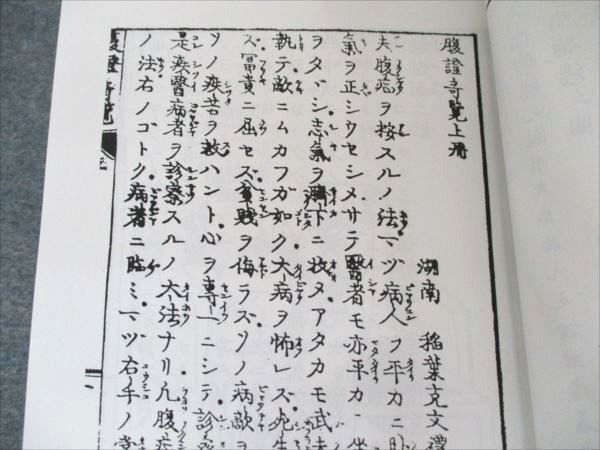 腹證奇覽上冊
湖南 稲葉克文禮
夫腹症ヲ按スルノ法マヅ病人ヲ平カニ卧
氣ヲ正シウセシメサテ醫者モ亦平カニ坐
ヲタヾシ志氣ヲ臍下ニ收メアタカモ武夫
執テ敵ニムカフガ如ク大病ヲ怖レズ死生
ズ冨貴ニ屈セズ貧賤ヲ侮ラズソノ病敵ヲ
ソノ疾苦ヲ救ハント心ヲ專一ニシテ診察
是疾醫病者ヲ診察スルノ大法ナリ凡腹症
ノ法右ノゴトク病者ニ臨ミマヅ右ノ手ノ掌
腹證奇覽